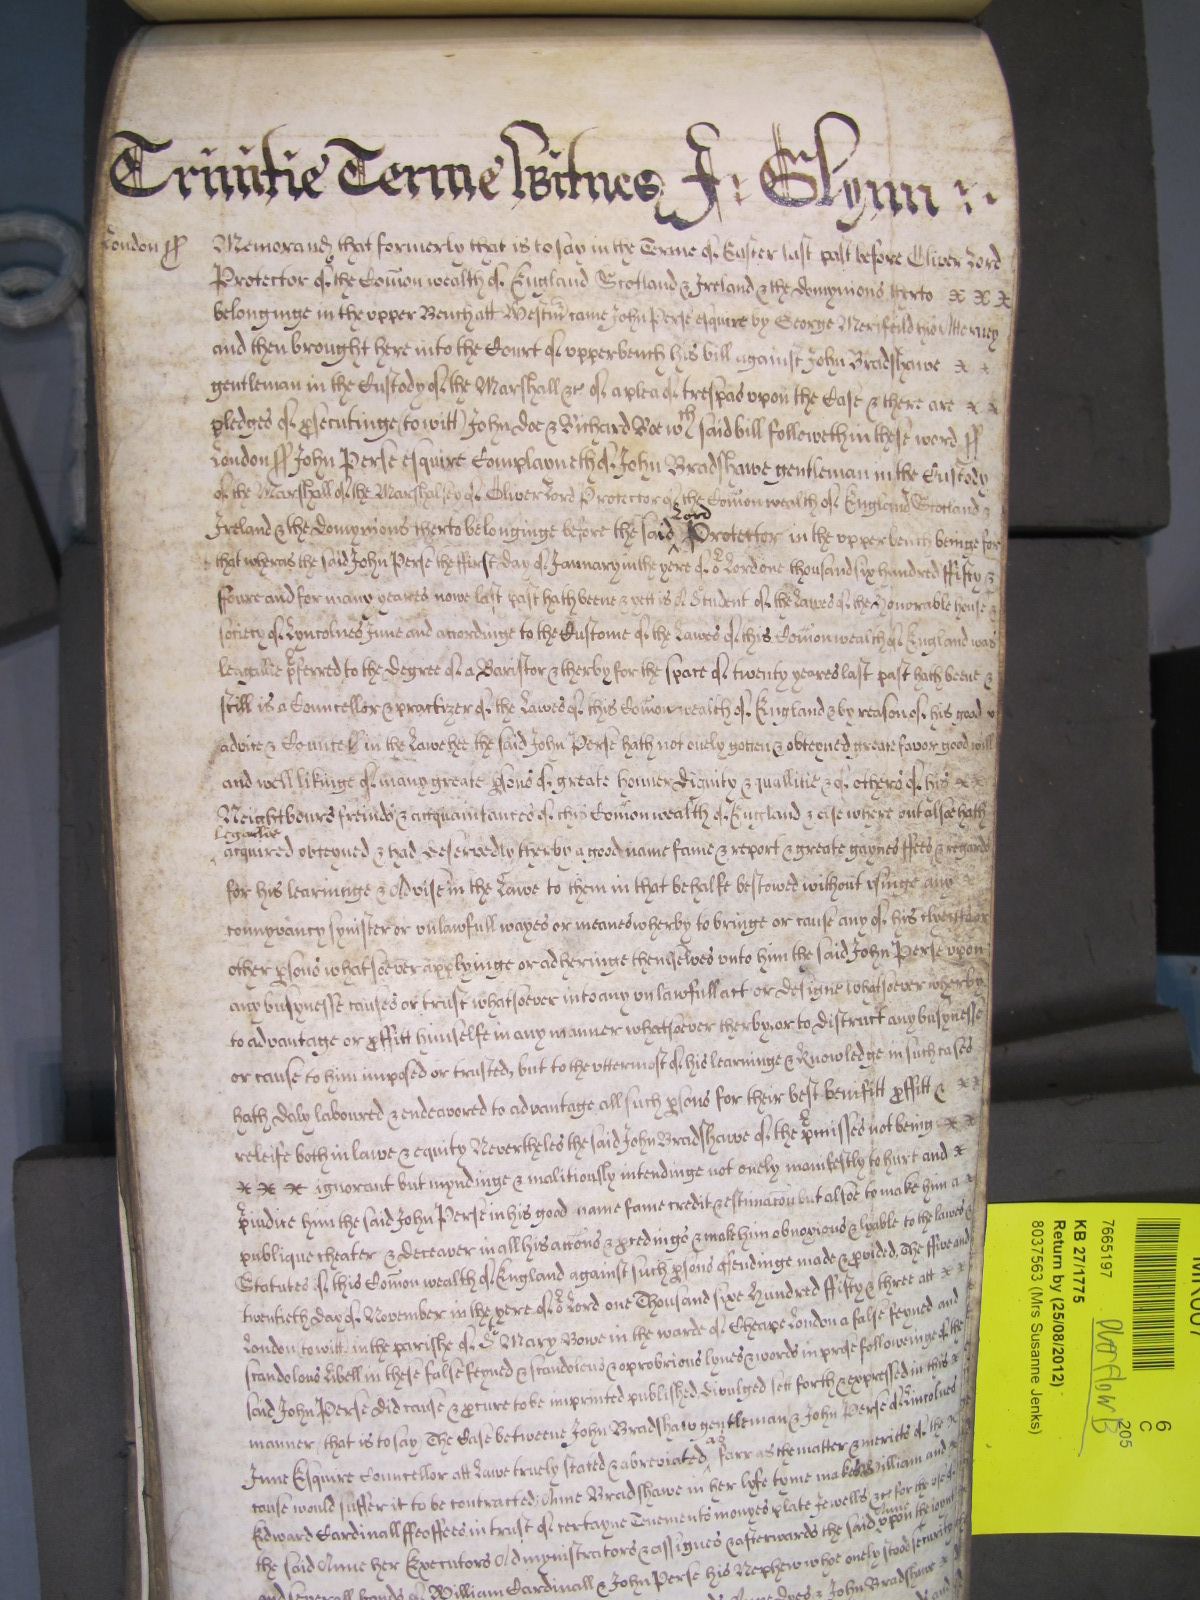 Trinitie Terme Witnes J: Glynn
London ss Memorand that formerly that is to say in the Terme of Easter last past before Oliver Lord
Protector of the Com̄on wealth of England Scotland & Ireland & the domynions therto x x x
belonginge in the upper Bench att Westmr came John Perse esquire by George Merifeild his Atterney
and then brought here into the Court of upper bench his bill against John Bradshawe x x
gentleman in the Custody of the Marshall &c of a plea of trespas upon the Case & there are x x
pledges of psecutinge (to witt) John Doe & Richard Roe wth said bill followeth in these word ss
London ss John Perse esquire Complayneth of John Bradshawe gentleman in the Custody
of the Marshall of the Marshalsey of Oliver Lord Protector of the Com̄on wealth of England Scotland &
Ireland & the domynions therto belonginge before the said Lord Protector in the upper bench beinge for
that wheras the said John Perse the ffirst day of January in the yere of or Lord one thousand six hundred ffifty &
ffoure and for many yeares nowe last past hath beene & yett is a Student of the Lawes of the honorable house &
society of Lyncolnes Inne and accordinge to the Custome of the Lawes of this Com̄on wealth of England was
leagallie pferred to the degree of a Baristor & therby for the space of twenty yeares last past hath beene &
still is a Councellor & practizer of the Lawes of this Com̄on wealth of England & by reason of his good
advice & Councell in the Lawe hee the said John Perse hath not onely gotten & obteyned greate favor good will
and well likinge of many greate psons of greate honner dignity & quallitie & of others of his x x
Neightbours freinds & acquaintances of this Com̄on wealth of England & else where but alsoe hath
legallie acquired obteyned & had deservedly therby a good name fame & report & greate gaynes ffees & regards
for his learninge & Advise in the Lawe to them in that behalfe bestowed without usinge any
connyvancy synister or unlawfull wayes or meanes wherby to bringe or cause any of his clyents or
other psons whatsoever applyinge or adheringe themselves unto him the said John Perse upon
any busynesse causes or trust whatsoever into any unlawfull act or designe whatsoever wherby
to advantage or pffitt himselfe in any manner whatsoever therby or to distract any busynesse
or cause to him imposed or trusted, but to the uttermost of his learninge & knowledge in such cases
hath daly laboured & endeavored to advantage all such psons for their best benifitt pffitt & x x
releife both in lawe & equity Nevertheles the said John Bradshawe of the pmisses not being x x
x x x ignorant but myndinge & malitiously intendinge not onely manifestly to hurt and x
piudice him the said John Perse in his good name fame credit & estimacōn but alsoe to make him a x
publique cheater & deceaver in all his accōns & pcedings & make him obnoxious & lyable to the lawes &
Statutes of this Com̄on wealth of England against such psons offendinge made & pvided, The ffive and
twentieth day of November in the yere of or Lord one Thousand sixe hundred ffifty & three att x x
London to witt in the parishe of St Mary Bowe in the warde of Cheape London a false feyned and
scandolous Libell in these false feyned & scandolous & oprobrious lynes & words in prose followeinge of the
said John Perse did cause & pcure to be imprinted published, divulged sett forth & expressed in this x
manner, that is to say The Case betweene John Bradshaw gentleman & John Perse of Lincolnes
Inne Esquire Councellor att Lawe truely stated & abreviated as farr as the matter & meritts of the x
cause would suffer it to be contracted, Anne Bradshawe in her lyfe tyme makes William and x
Edward Cardinall ffeoffees in trust of certayne Tenements monyes plate Jewells &c for the use of
the said Anne her Executors Administrators & assignes & afterwards the said Anne upon the ioynt
and severall bonds of William Cardinall & John Perse his Nephew whoe onely stood security
7665197
KB 27/1775
Return by (25/08/2012)
8037563 (Mrs Susanne Jenks)
6
C
205